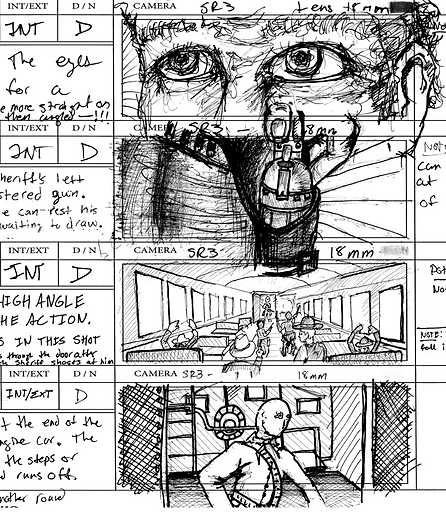 INT/EXT D / N CAMERA SR3 Lens 18mm
INT D
The eyes
for a
more straight on
INT/EXT D / N CAMERA SR3 - 18mm
INT D
sheriff's left
gun.
can rest his
waiting to draw.
Can
at
of
INT/EXT D / N CAMERA SR3 18mm
INT D
HIGH ANGLE
THE ACTION.
IN THIS SHOT
through the door after
the sheriff shoots at him
NOTE:
INT/EXT D / N CAMERA SR3 - 18mm
INT/EXT D
t the end of the
engine car. The
the steps or
runs off.
another round